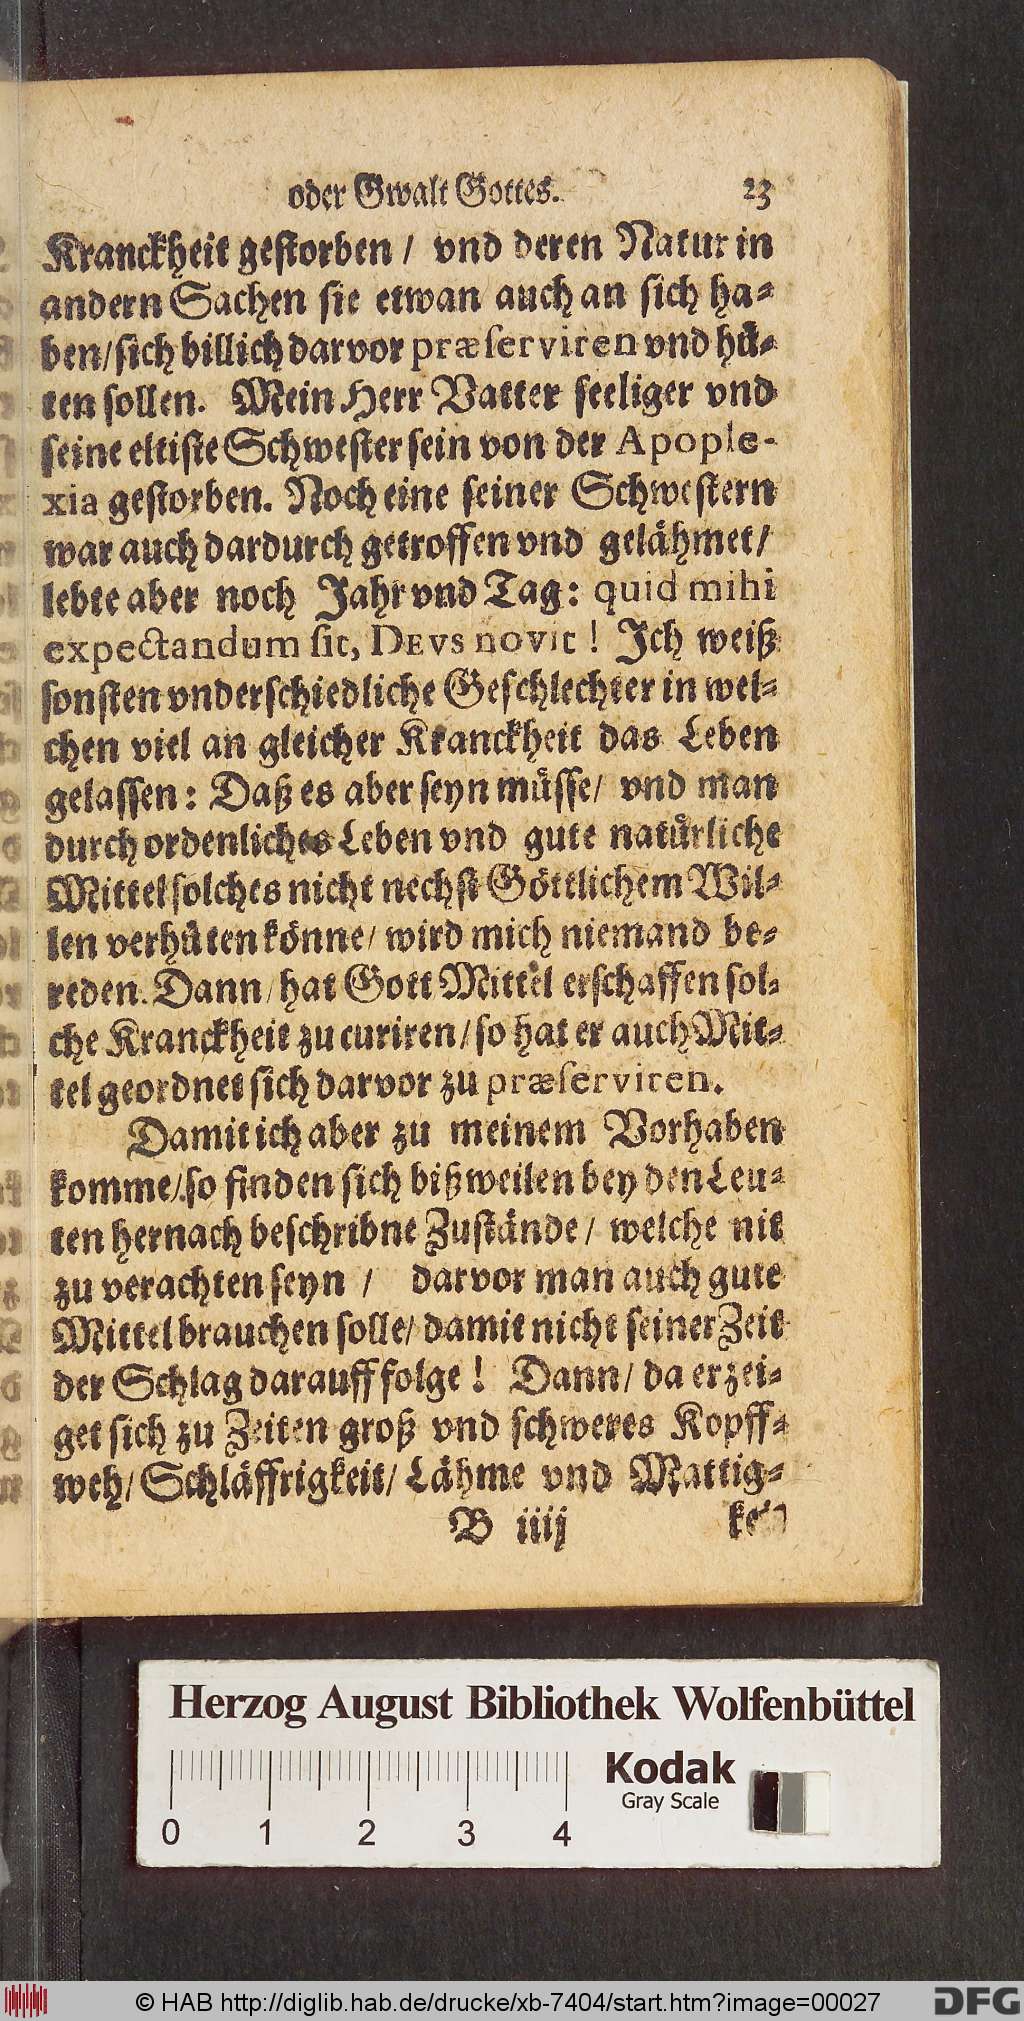 oder Gwalt Gottes. 23
Kranckheit gestorben / vnd deren Natur in
andern Sachen sie etwan auch an sich ha-
ben/sich billich darvor præserviren vnd hü-
ten sollen. Mein Herr Vatter seeliger vnd
seine eltiste Schwester sein von der Apople-
xia gestorben. Noch eine seiner Schwestern
war auch dardurch getroffen vnd gelähmet/
lebte aber noch Jahr vnd Tag: quid mihi
expectandum sit, DEVS novit! Ich weiß
sonsten vnderschiedliche Geschlechter in wel-
chen viel an gleicher Kranckheit das Leben
gelassen: Daß es aber seyn müsse/ vnd man
durch ordenliches Leben vnd gute natürliche
Mittel solches nicht nechst Göttlichem Wil-
len verhüten könne/ wird mich niemand be-
reden. Dann/ hat Gott Mittel erschaffen sol-
che Kranckheit zu curiren/ so hat er auch Mit-
tel geordnet sich darvor zu præserviren.
Damit ich aber zu meinem Vorhaben
komme/ so finden sich bißweilen bey den Leu-
ten hernach beschribne Zustände/ welche nit
zu verachten seyn / darvor man auch gute
Mittel brauchen solle/ damit nicht seiner Zeit
der Schlag darauff folge! Dann/ da erzei-
get sich zu Zeiten groß vnd schweres Kopff-
weh/ Schläffrigkeit/ Lähme vnd Mattig-
B iiij
Herzog August Bibliothek Wolfenbüttel
Kodak
Gray Scale
0 1 2 3 4
© HAB http://diglib.hab.de/drucke/xb-7404/start.htm?image=00027
DFG